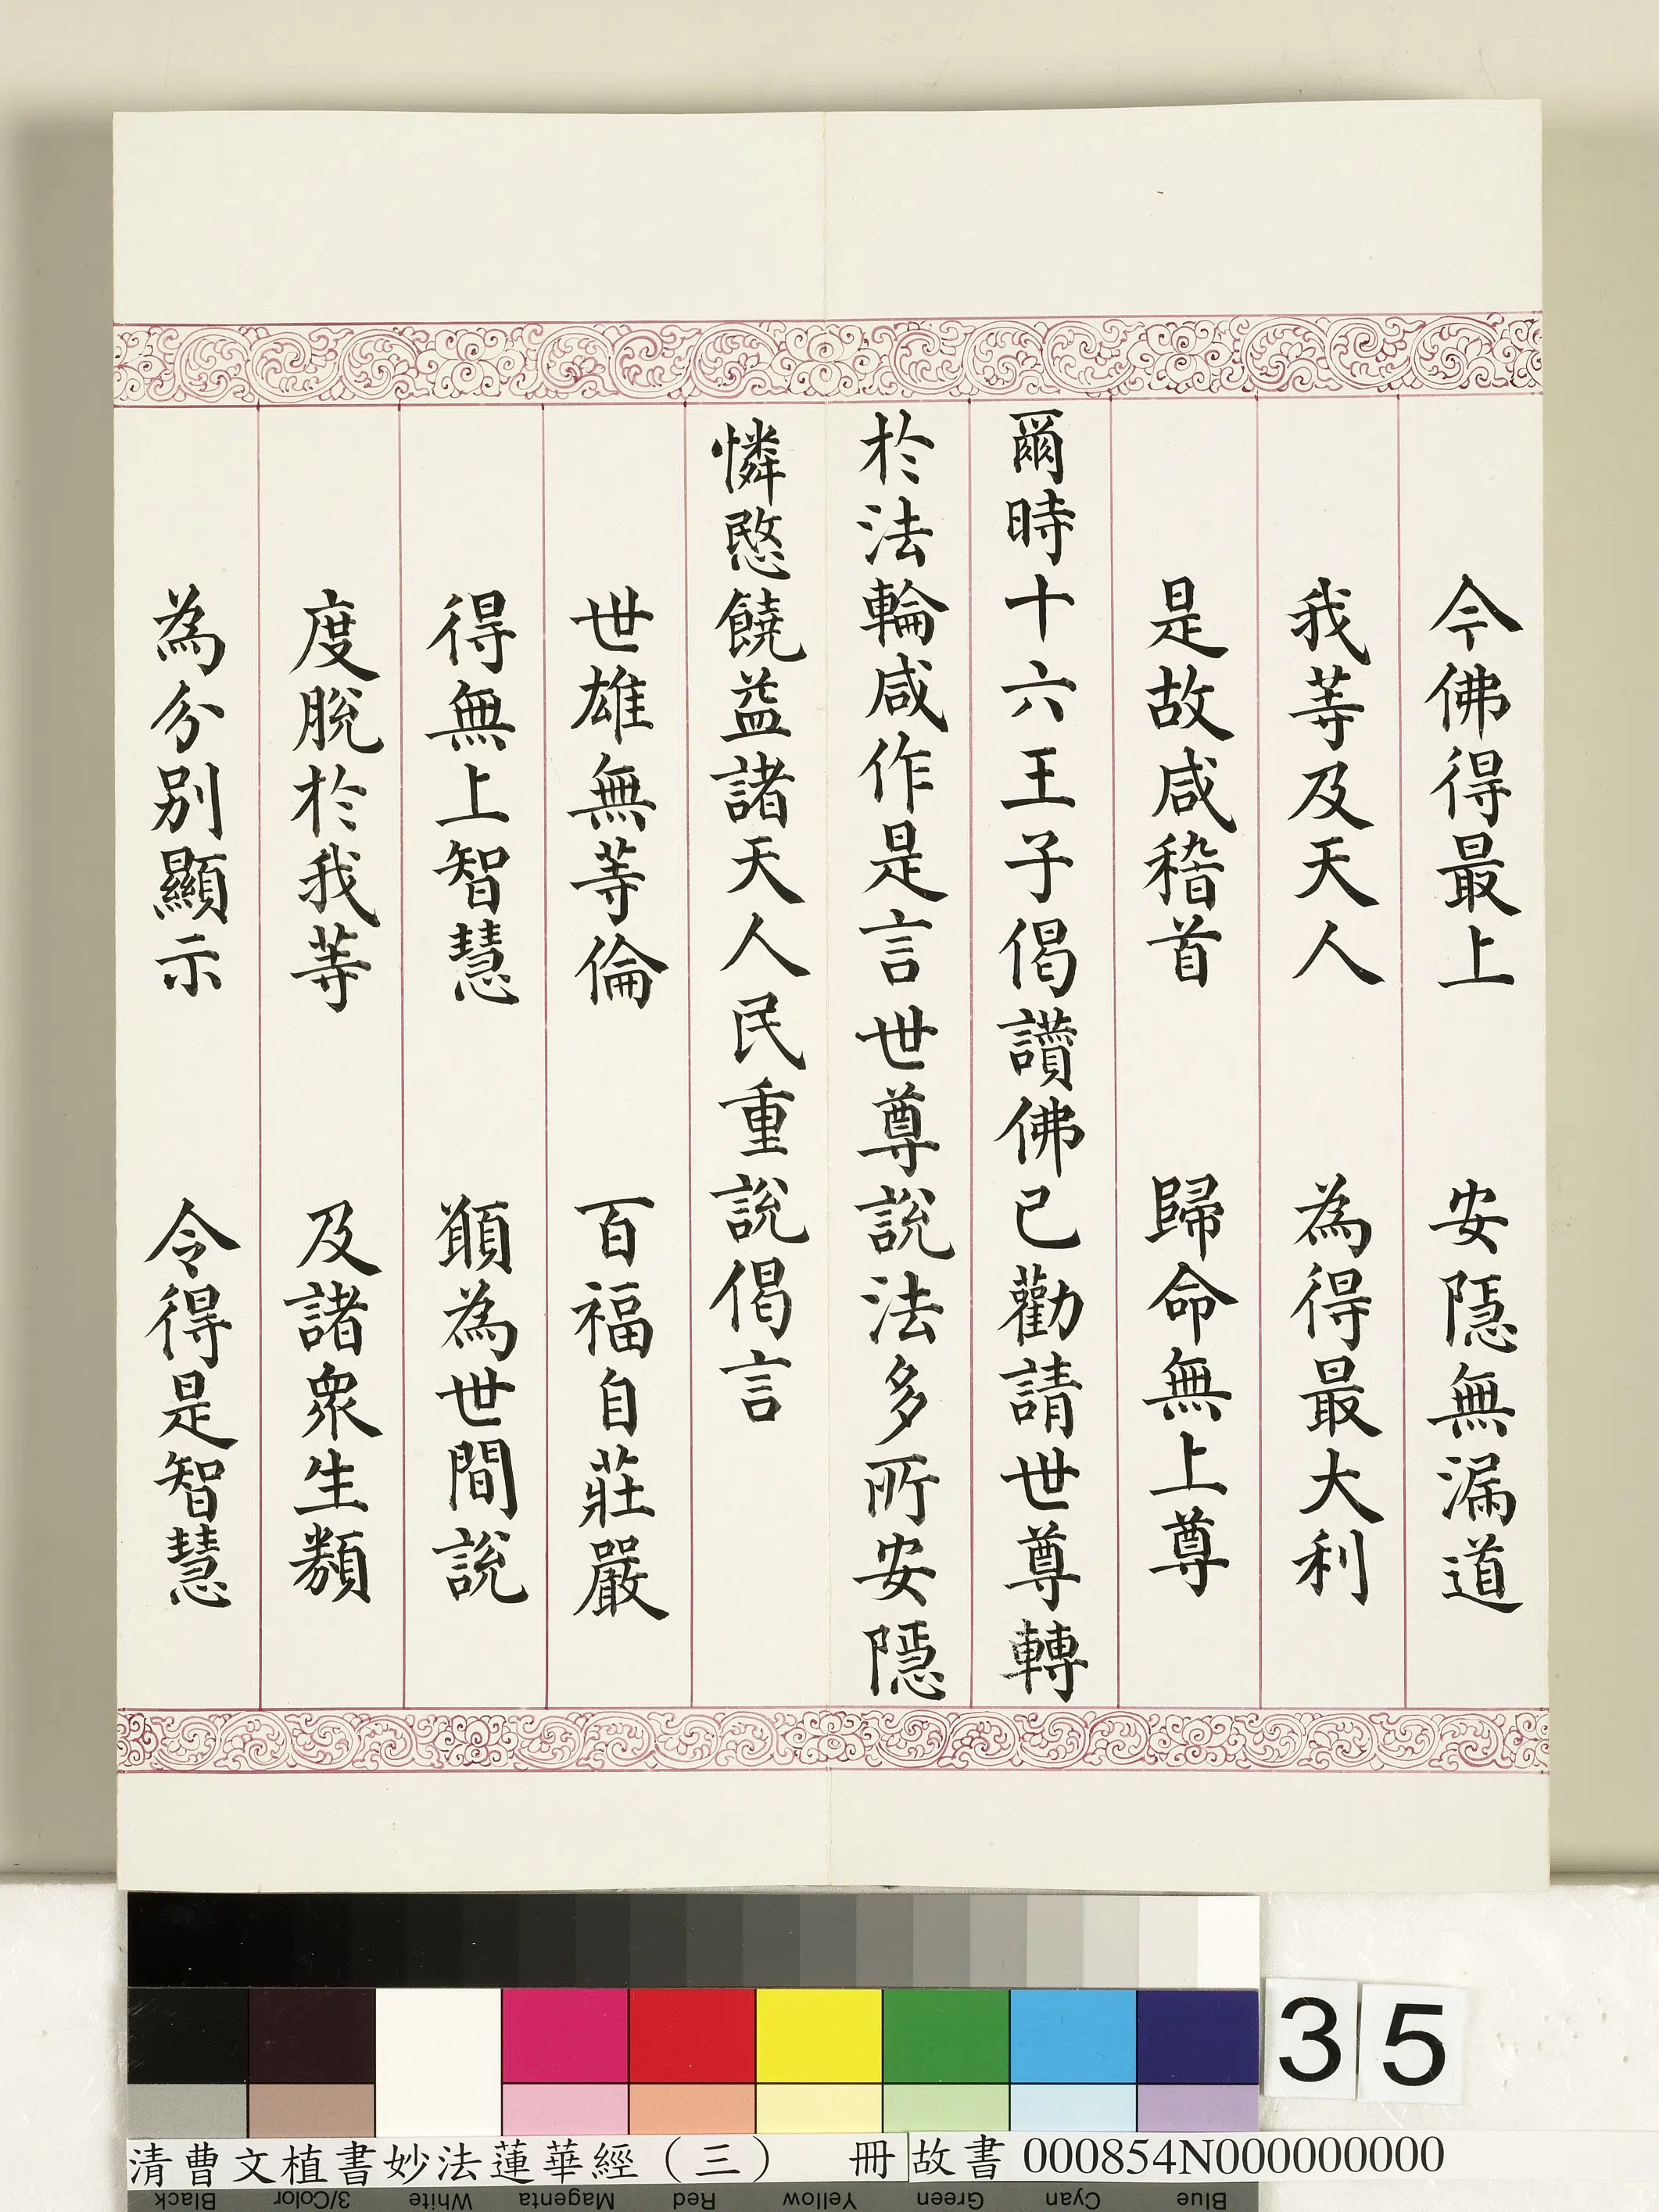 今佛得最上　安隱無漏道
我等及天人　為得最大利
是故咸稽首　歸命無上尊
爾時十六王子偈讚佛已勸請世尊轉
於法輪咸作是言世尊說法多所安隱
憐愍饒益諸天人民重說偈言
世雄無等倫　百福自莊嚴
得無上智慧　願為世間說
度脫於我等　及諸衆生類
為分別顯示　令得是智慧
35
清曹文植書妙法蓮華經（三）　冊 故書 000854N000000000
Black 3/Color White Magenta Red Yellow Green Cyan Blue